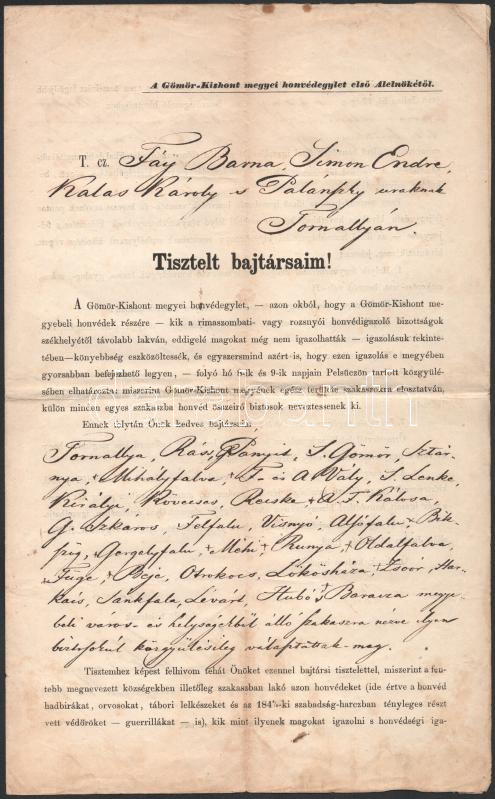 A Gömör-Kishont megyei honvédegylet első Alelnökétől.
T. cz. Fáy Barna, Simon Endre,
Kalas Károly s Palánszky uraknak
Tornallyán.
Tisztelt bajtársaim!
A Gömör-Kishont megyei honvédegylet, — azon okból, hogy a Gömör-Kishont me-
gyebeli honvédek részére — kik a rimaszombati- vagy rozsnyói honvédigazoló bizottságok
székhelyétől távolabb lakván, eddigelé magokat még nem igazolhatták — igazolásuk tekinte-
tében—könnyebbség eszközöltessék, és egyszersmind azért is, hogy ezen igazolás e megyében
gyorsabban befejezhető legyen, — folyó hó 8-ik és 9-ik napjain Pelsüczön tartott közgyülé-
sében elhatározta: miszerint Gömör-Kishont megyének egész területe szakaszokra elosztatván,
külön minden egyes szakaszba honvéd összeiró biztosok neveztessenek ki.
Ennek folytán Önök kedves bajtársaim
Tornallya, Rás, Panyit, S. Gömör, Sztár-
nya, Mihályfalva, F- és A Vály, S. Lenke,
Királyi, Kövecses, Recske, A. F. Kálosa,
G. Szkáros, Felfalu, Visnyó, Alsófalu, Bik-
szög, Gergelyfalu, Méhi, Runya, Oldalfalva,
Füge, Beje, Otrokocs, Lökösháza, Zsór, Har-
kács, Sánkfalva, Lévárt, Hubó, Baracza megye-
beli város- és helységekből álló szakaszra nézve ilyen
biztosokúl közgyülésileg választattak-meg.
Tisztemhez képest felhivom tehát Önöket ezennel bajtársi tisztelettel, miszerint a fen-
tebb megnevezett községekben illetőleg szakaszban lakó azon honvédeket (ide értve a honvéd
hadbirákat, orvosokat, tábori lelkészeket és az 1848/9-ki szabadság-harczban tényleges részt
vett védőröket — guerrillákat — is), kik mint ilyenek magokat igazolni s honvédségi iga-